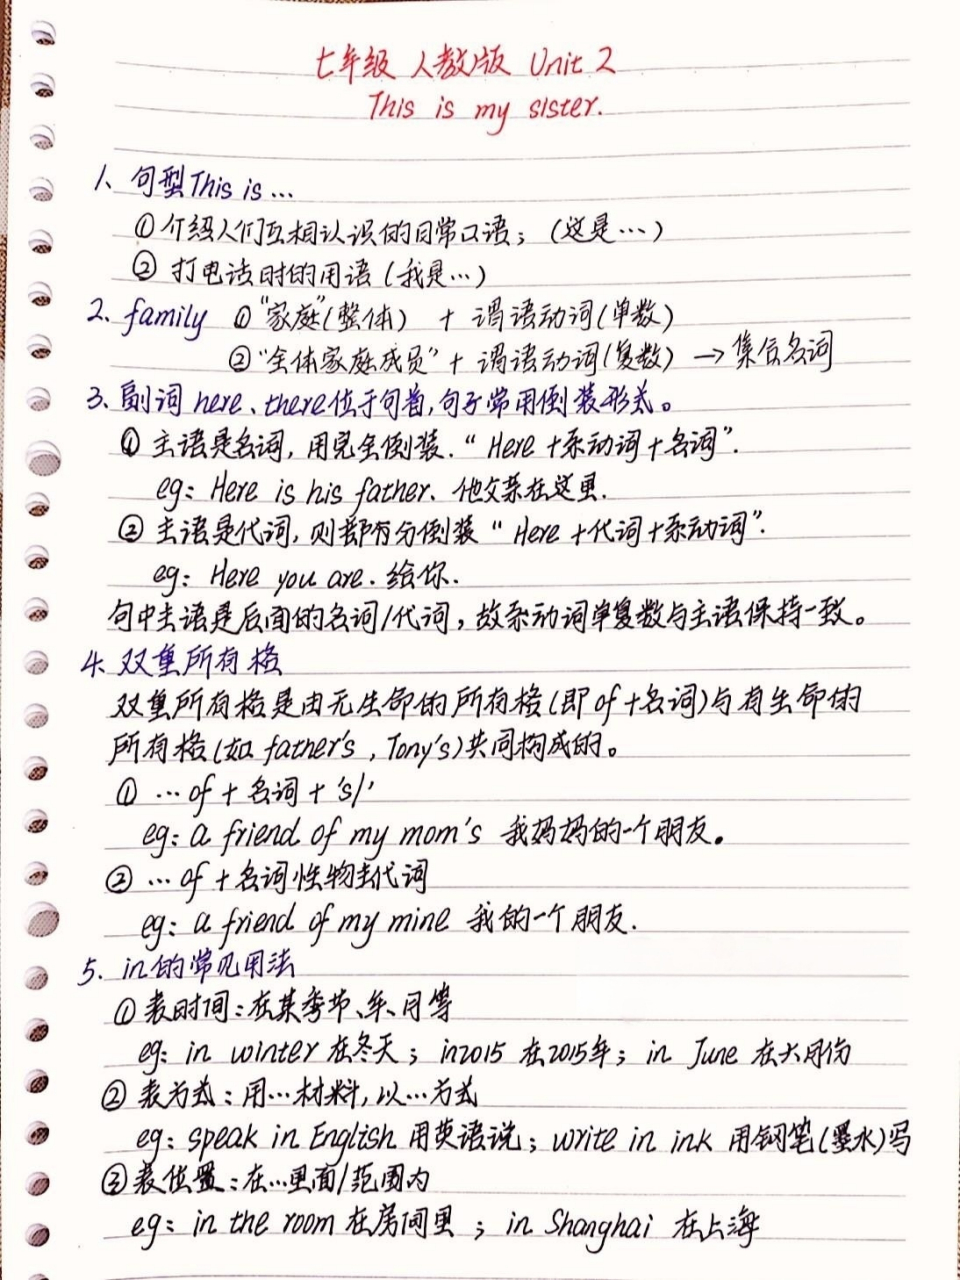 七年级 人教版 Unit 2
This is my sister.
1、句型This is …
① 介绍人们互相认识的日常口语；（这是…）
② 打电话时的用语（我是…）
2、family ①“家庭”（整体） + 谓语动词（单数）
②“全体家庭成员” + 谓语动词（复数） → 集合名词
3、副词 here、there位于句首，句子常用倒装形式。
① 主语是名词，用完全倒装.“ Here +系动词+名词”.
eg：Here is his father. 他父亲在这里.
② 主语是代词，则部分倒装“ Here +代词+系动词”.
eg：Here you are. 给你.
句中主语是后面的名词/代词，故系动词单复数与主语保持一致。
4、双重所有格
双重所有格是由无生命的所有格（即of +名词）与有生命的
所有格（如 father's , Tony's）共同构成的。
① … of + 名词 + 's/'
eg：a friend of my mom's 我妈妈的一个朋友。
② … of +名词性物主代词
eg：a friend of my mine 我的一个朋友.
5、in的常见用法
① 表时间：在某季节、年、月等
eg：in winter 在冬天；in2015 在2015年；in June 在六月份
② 表方式：用…材料，以…方式
eg：speak in English 用英语说；write in ink 用钢笔（墨水）写
③ 表位置：在…里面/范围内
eg：in the room 在房间里 ；in Shanghai 在上海